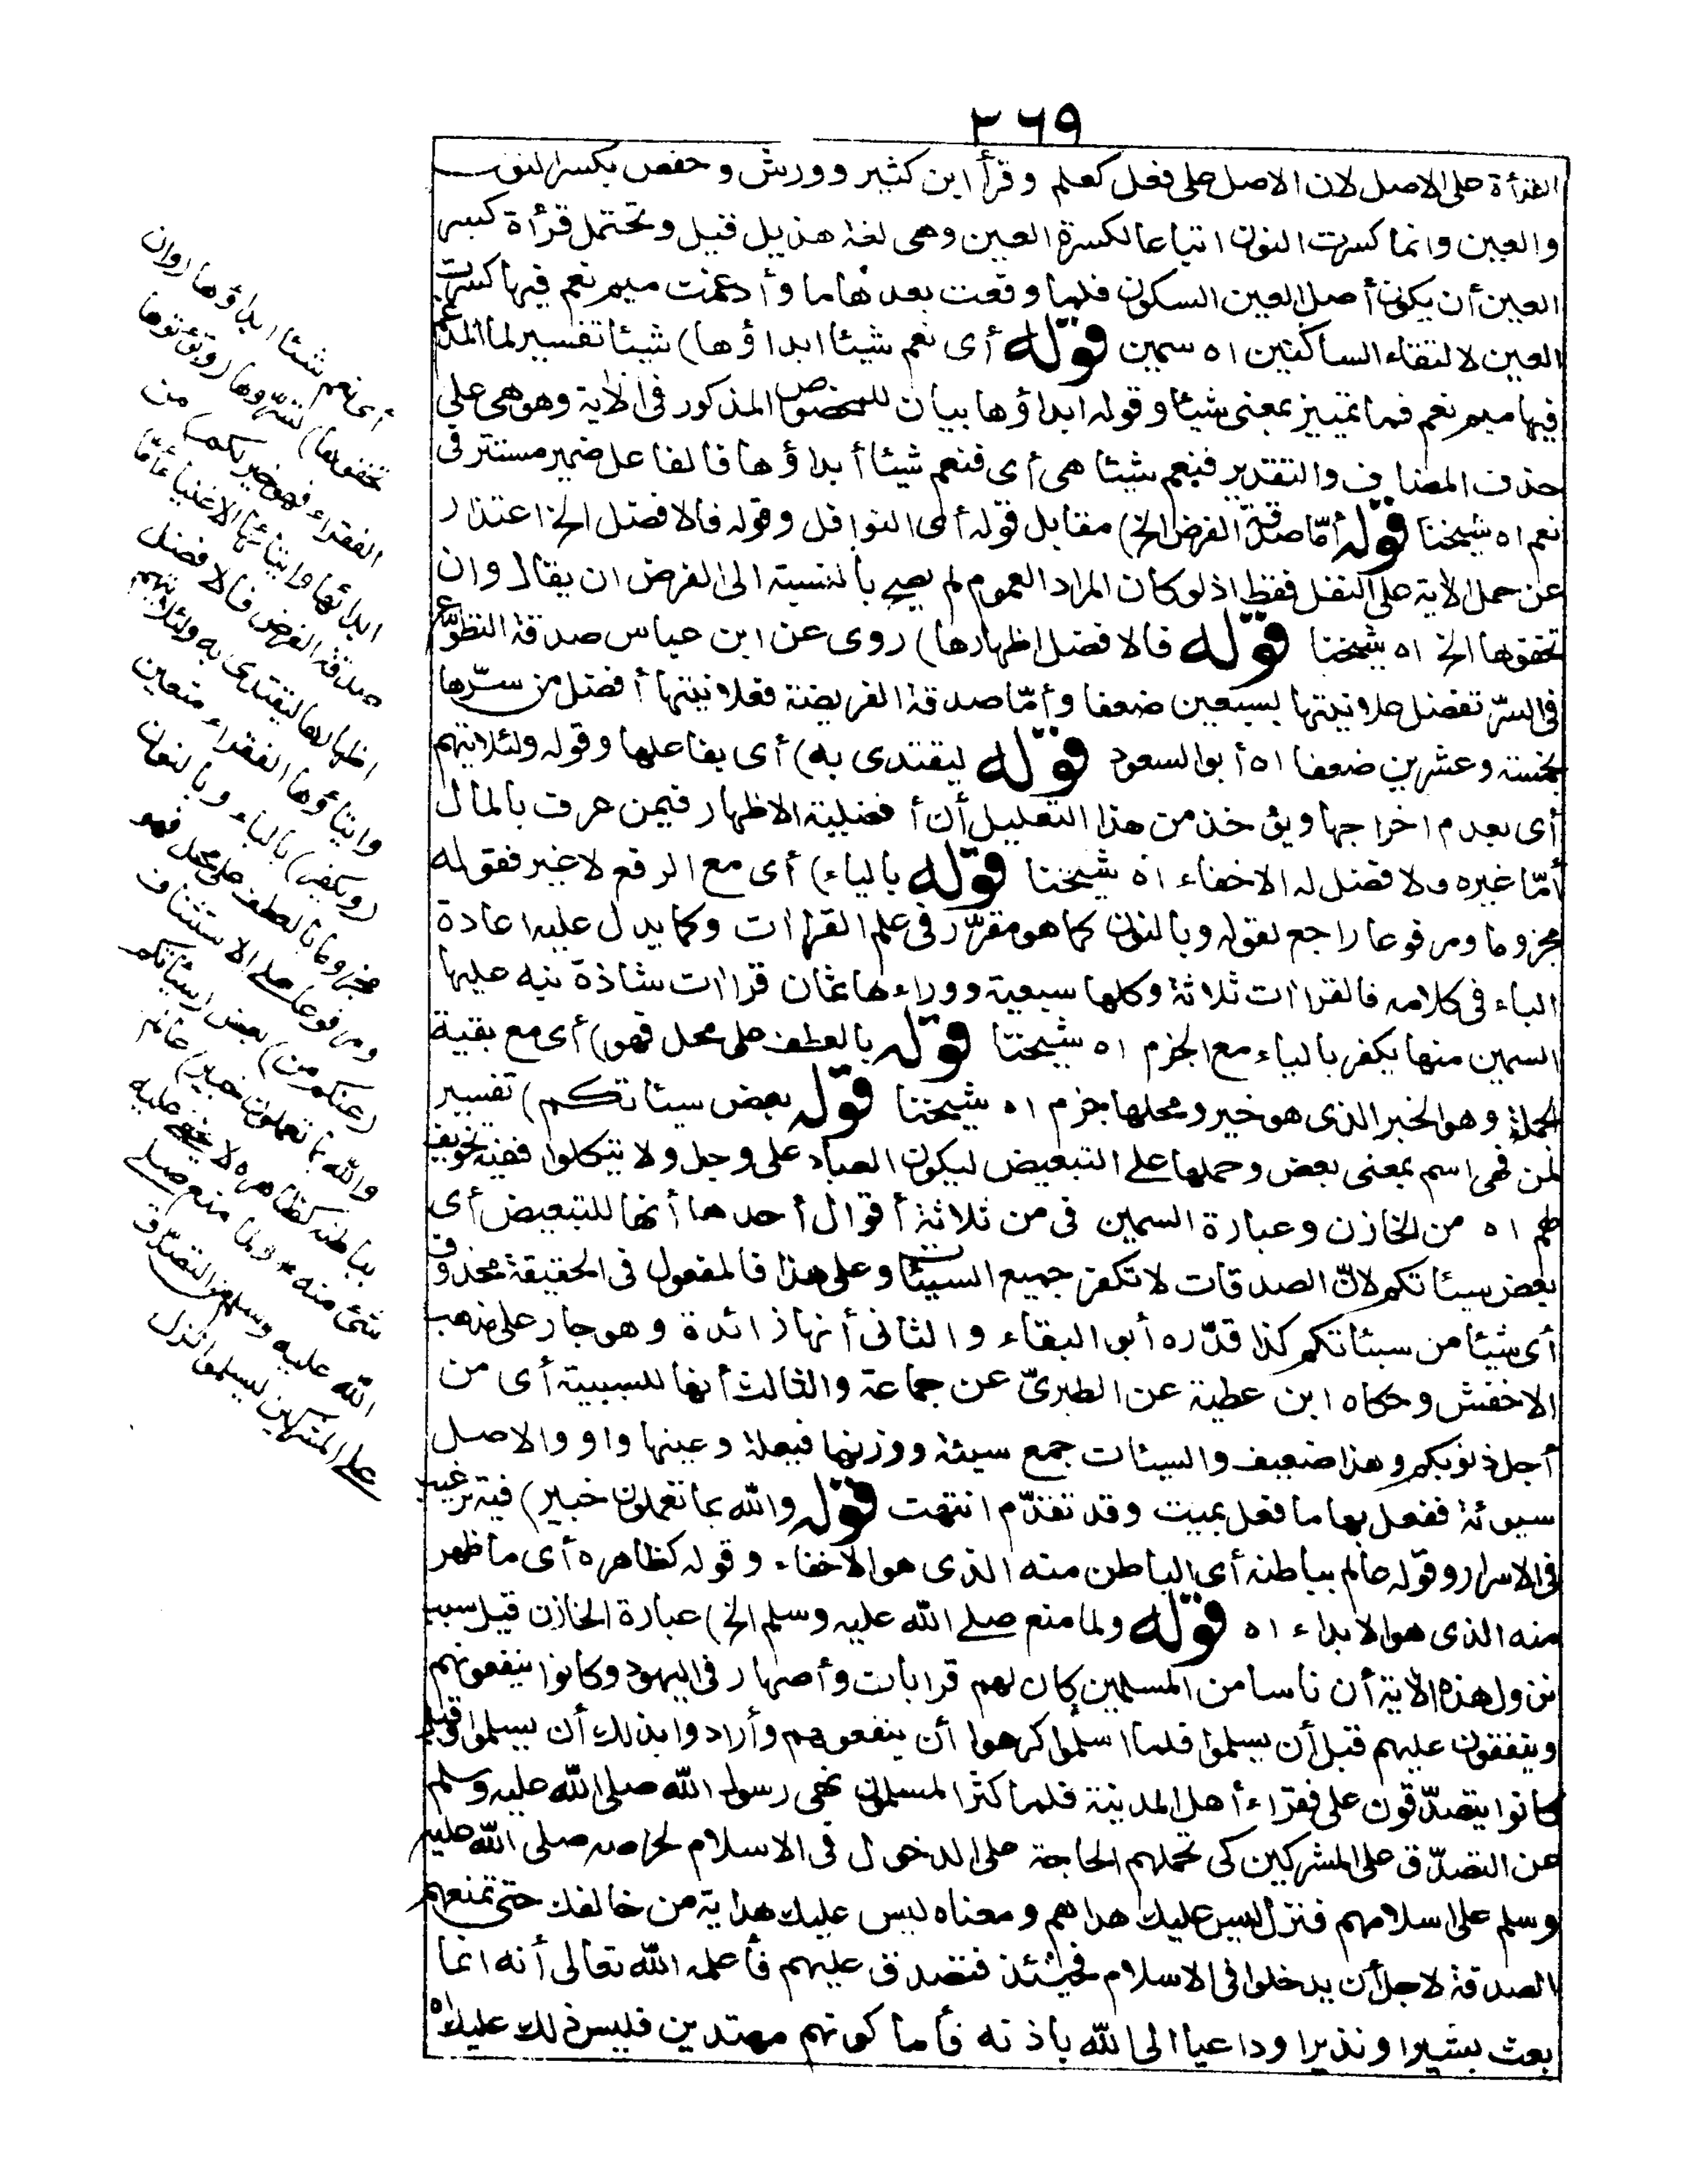 ٢٦٩
القرأة على الاصل لان الاصل على فعل كعلم وقرأ ابن كثير وورش وحفص بكسر النون
والعين وانما كسرت النون اتباعا لكسرة العين وهى لغة هذيل قيل وتحتمل قرأة كسر
العين أن يكون أصل العين السكون فلما وقعت بعدها ما وأدغمت ميم نعم فيها كسرت
العين لالتقاء الساكنين اه سمين قوله أى نعم شيئا ابداؤها) شيئا تفسير لما المدغم
فيها ميم نعم فما تمييز بمعنى شيئا وقوله ابداؤها بيان للمخصوص المذكور فى الآية وهو هى على
حذف المضاف والتقدير فنعم شيئا هى أى فنعم شيئا أبداؤها فالفاعل ضمير مستتر فى
نعم اه شيخنا قوله أمّا صدقة الفرض الخ) مقابل قوله أى النوافل وقوله فالافضل الخ اعتذار
عن حمل الآية على النفل فقط اذ لو كان المراد العموم لم يصح بالنسبة الى الفرض ان يقال وان
تخفوها الخ اه شيخنا قوله فالافضل اظهارها) روى عن ابن عباس صدقة التطوّع
فى السرّ تفضل علانيتها بسبعين ضعفا وأمّا صدقة الفريضة فعلانيتها أفضل من سرّها
بخمسة وعشرين ضعفا اه أبو السعود قوله ليقتدى به) أى بفاعلها وقوله ولئلا يتهم
أى بعدم اخراجها ويؤخذ من هذا التعليل أن أفضلية الاظهار فيمن عرف بالمال
أمّا غيره فلا فضل له الاخفاء اه شيخنا قوله بالياء) أى مع الرفع لا غير فقوله
مجزوما ومرفوعا راجع لقوله وبالنون كما هو مقرّر فى علم القراات وكما يدل عليه اعادة
الباء فى كلامه فالقراات ثلاثة وكلها سبعية ووراءها ثمان قراات شاذة نبه عليها
السمين منها يكفر بالياء مع الجزم اه شيخنا قوله بالعطف على محل فهو) أى مع بقية
الجملة وهو الخبر الذى هو خير ومحلها جزم اه شيخنا قوله بعض سيئاتكم) تفسير
لمن فهى اسم بمعنى بعض وحملها على التبعيض ليكون العباد على وجل ولا يتكلوا ففيه تخويف
لهم اه من الخازن وعبارة السمين فى من ثلاثة أقوال أحدها أنها للتبعيض أى
بعض سيئاتكم لانّ الصدقات لا تكفر جميع السيئات وعلى هذا فالمفعول فى الحقيقة محذوف
أى شيئا من سيئاتكم كذا قدّره أبو البقاء والثانى أنها زائدة وهو جار على مذهب
الاخفش وحكاه ابن عطية عن الطبرىّ عن جماعة والثالث أنها للسببية أى من
أجل ذنوبكم وهذا ضعيف والسيئات جمع سيئة ووزنها فيعلة وعينها واو والاصل
سيوئة ففعل بها ما فعل بميت وقد تقدّم انتهت قوله والله بما تعملون خبير) فيه ترغيب
فى الاسرار وقوله عالم بباطنه أى الباطن منه الذى هو الاخفاء وقوله كظاهره أى ما ظهر
منه الذى هو الابداء اه قوله ولما منع صلى الله عليه وسلم الخ) عبارة الخازن قيل سبب
نزول هذه الآية أن ناسا من المسلمين كان لهم قرابات وأصهار فى اليهود وكانوا ينفعونهم
وينفقون عليهم قبل أن يسلموا فلما اسلموا كرهوا أن ينفعوهم وأرادوا بذلك أن يسلموا وقيل
كانوا يتصدّقون على فقراء أهل المدينة فلما كثر المسلمون نهى رسول الله صلى الله عليه وسلم
عن التصدّق على المشركين كى تحملهم الحاجة على الدخول فى الاسلام لحرصه صلى الله عليه
وسلم على اسلامهم فنزل ليس عليك هداهم ومعناه ليس عليك هداية من خالفك حتى تمنعهم
الصدقة لاجل أن يدخلوا فى الاسلام فحينئذ فتصدق عليهم فأعلمه الله تعالى أنه انما
بعث بشيرا ونذيرا وداعيا الى الله باذنه فأما كونهم مهتدين فليس ذلك عليك اه
أى نعم شيئا ابداؤها (وان
تخفوها) تسرّوها (وتؤتوها
الفقراء فهو خير لكم) من
ابدائها وايتائها الاغنياء أمّا
صدقة الفرض فالافضل
اظهارها ليقتدى به ولئلا يتهم
وايتاؤها الفقراء متعين
(ويكفر) بالياء وبالنون
مجزوما بالعطف على محل فهو
ومرفوعا على الاستئناف
(عنكم من) بعض (سيئاتكم
والله بما تعملون خبير) عالم
بباطنه كظاهره لا يخفى عليه
شئ منه * ولما منع صلى
الله عليه وسلم من التصدّق
على المشركين ليسلموا نزل